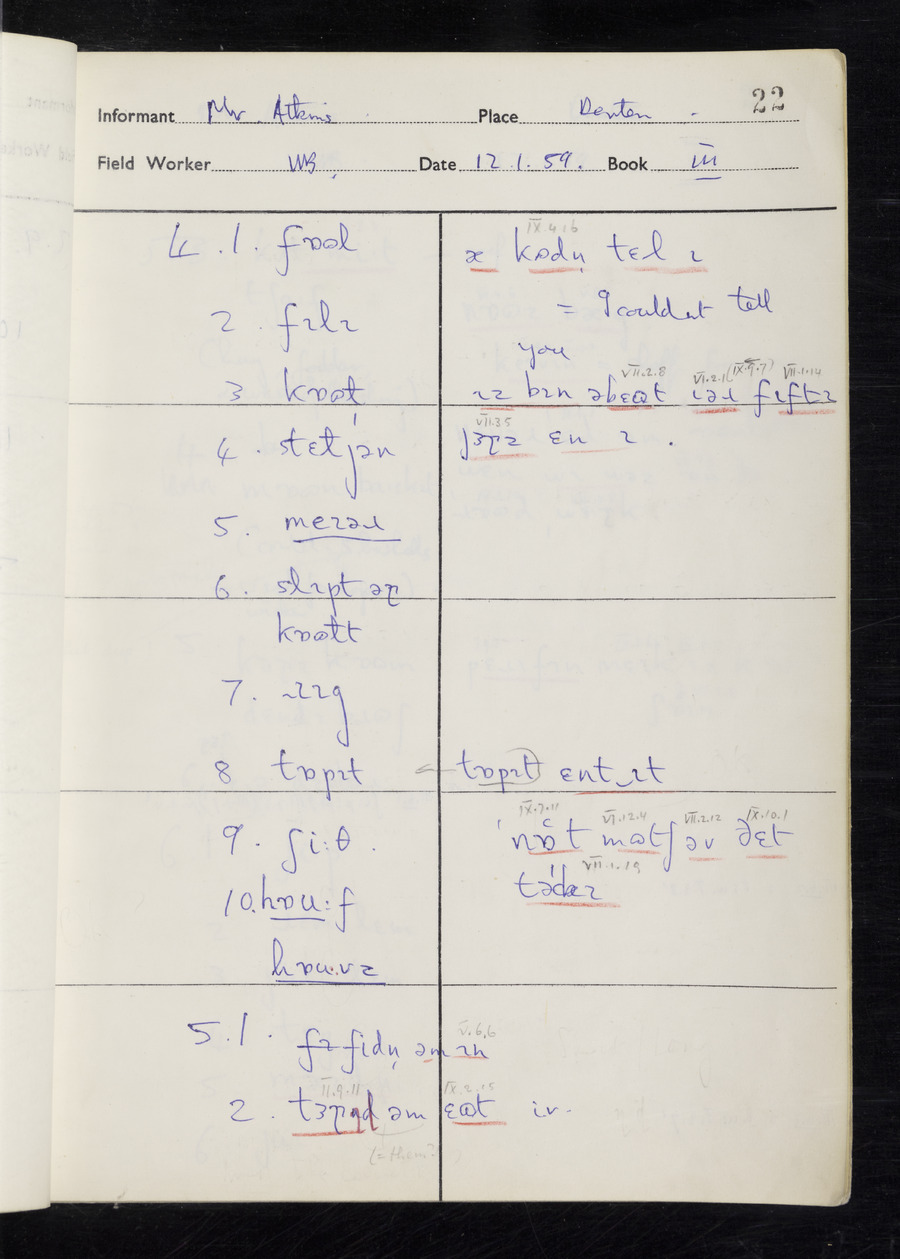 22
Informant Mr. Atkins Place Denton
Field Worker WB, Date 12.1.59. Book III
4.1. fɒəl
2. fɪlɪ
3 kɒət
4. stɛtjən
5. mɛɪəɹ
6. slɪpt əɽ
kɒəlt
7. ɹɪg
8 tɒpɪt
9. ʃi:θ.
10. hɒu:f
hɒu:vz
IX.4.16
kɒdn̩ tɛl ɪ
= I couldnt tell
you
VII.2.8 VI.2.1 (IX.9.7) VII.1.14
ɪz bɪn əbɛɷt ɪəɹ fɪftɪ
VII.3.5
jɜɽz ɛn ɪ .
tɒpɪt ɛnt ɪt
IX.7.11 VI.12.4 VII.2.12 IX.10.1
nɒt mɷtʃ əv ðɛt
VII.1.19
5.1. fɪ fidn̩ əm ɪn
V.6.6
II.9.11 IX.2.15
2. tɜɽnd əm ɛɷt
(=them?)